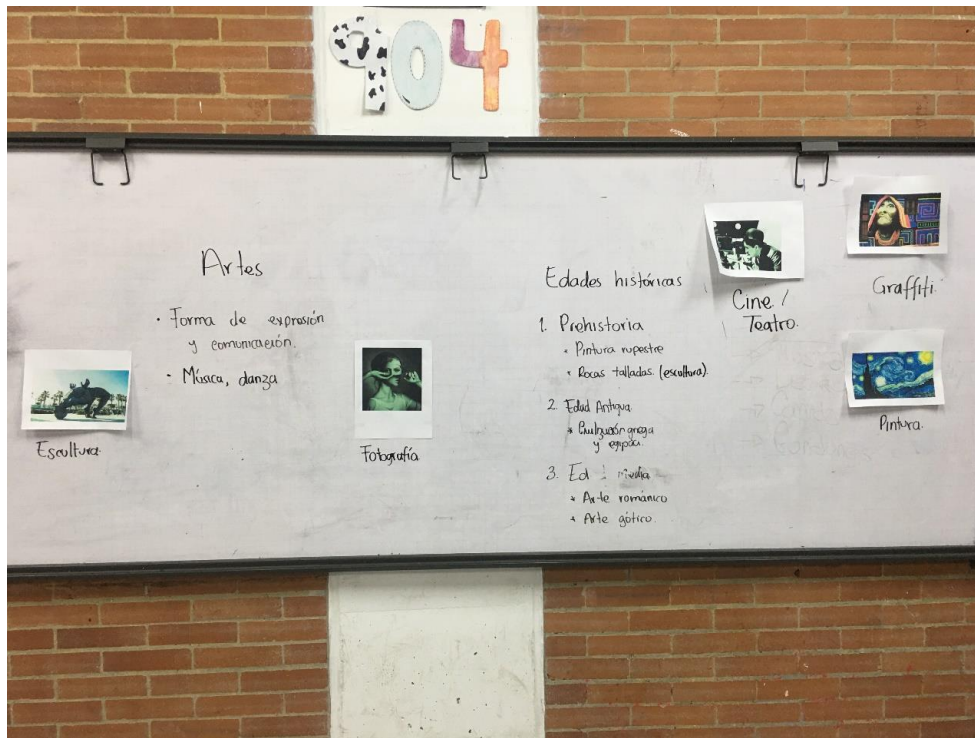 904
Artes
• Forma de expresión
y comunicación.
• Música, danza
Escultura.
Fotografía
Edades históricas
1. Prehistoria
• Pintura rupestre
• Rocas talladas. (escultura).
2. Edad Antigua.
* Civilización griega
y egipcia.
3. Ed media
* Arte románico
* Arte gótico.
Cine /
Teatro.
Graffiti.
Pintura.